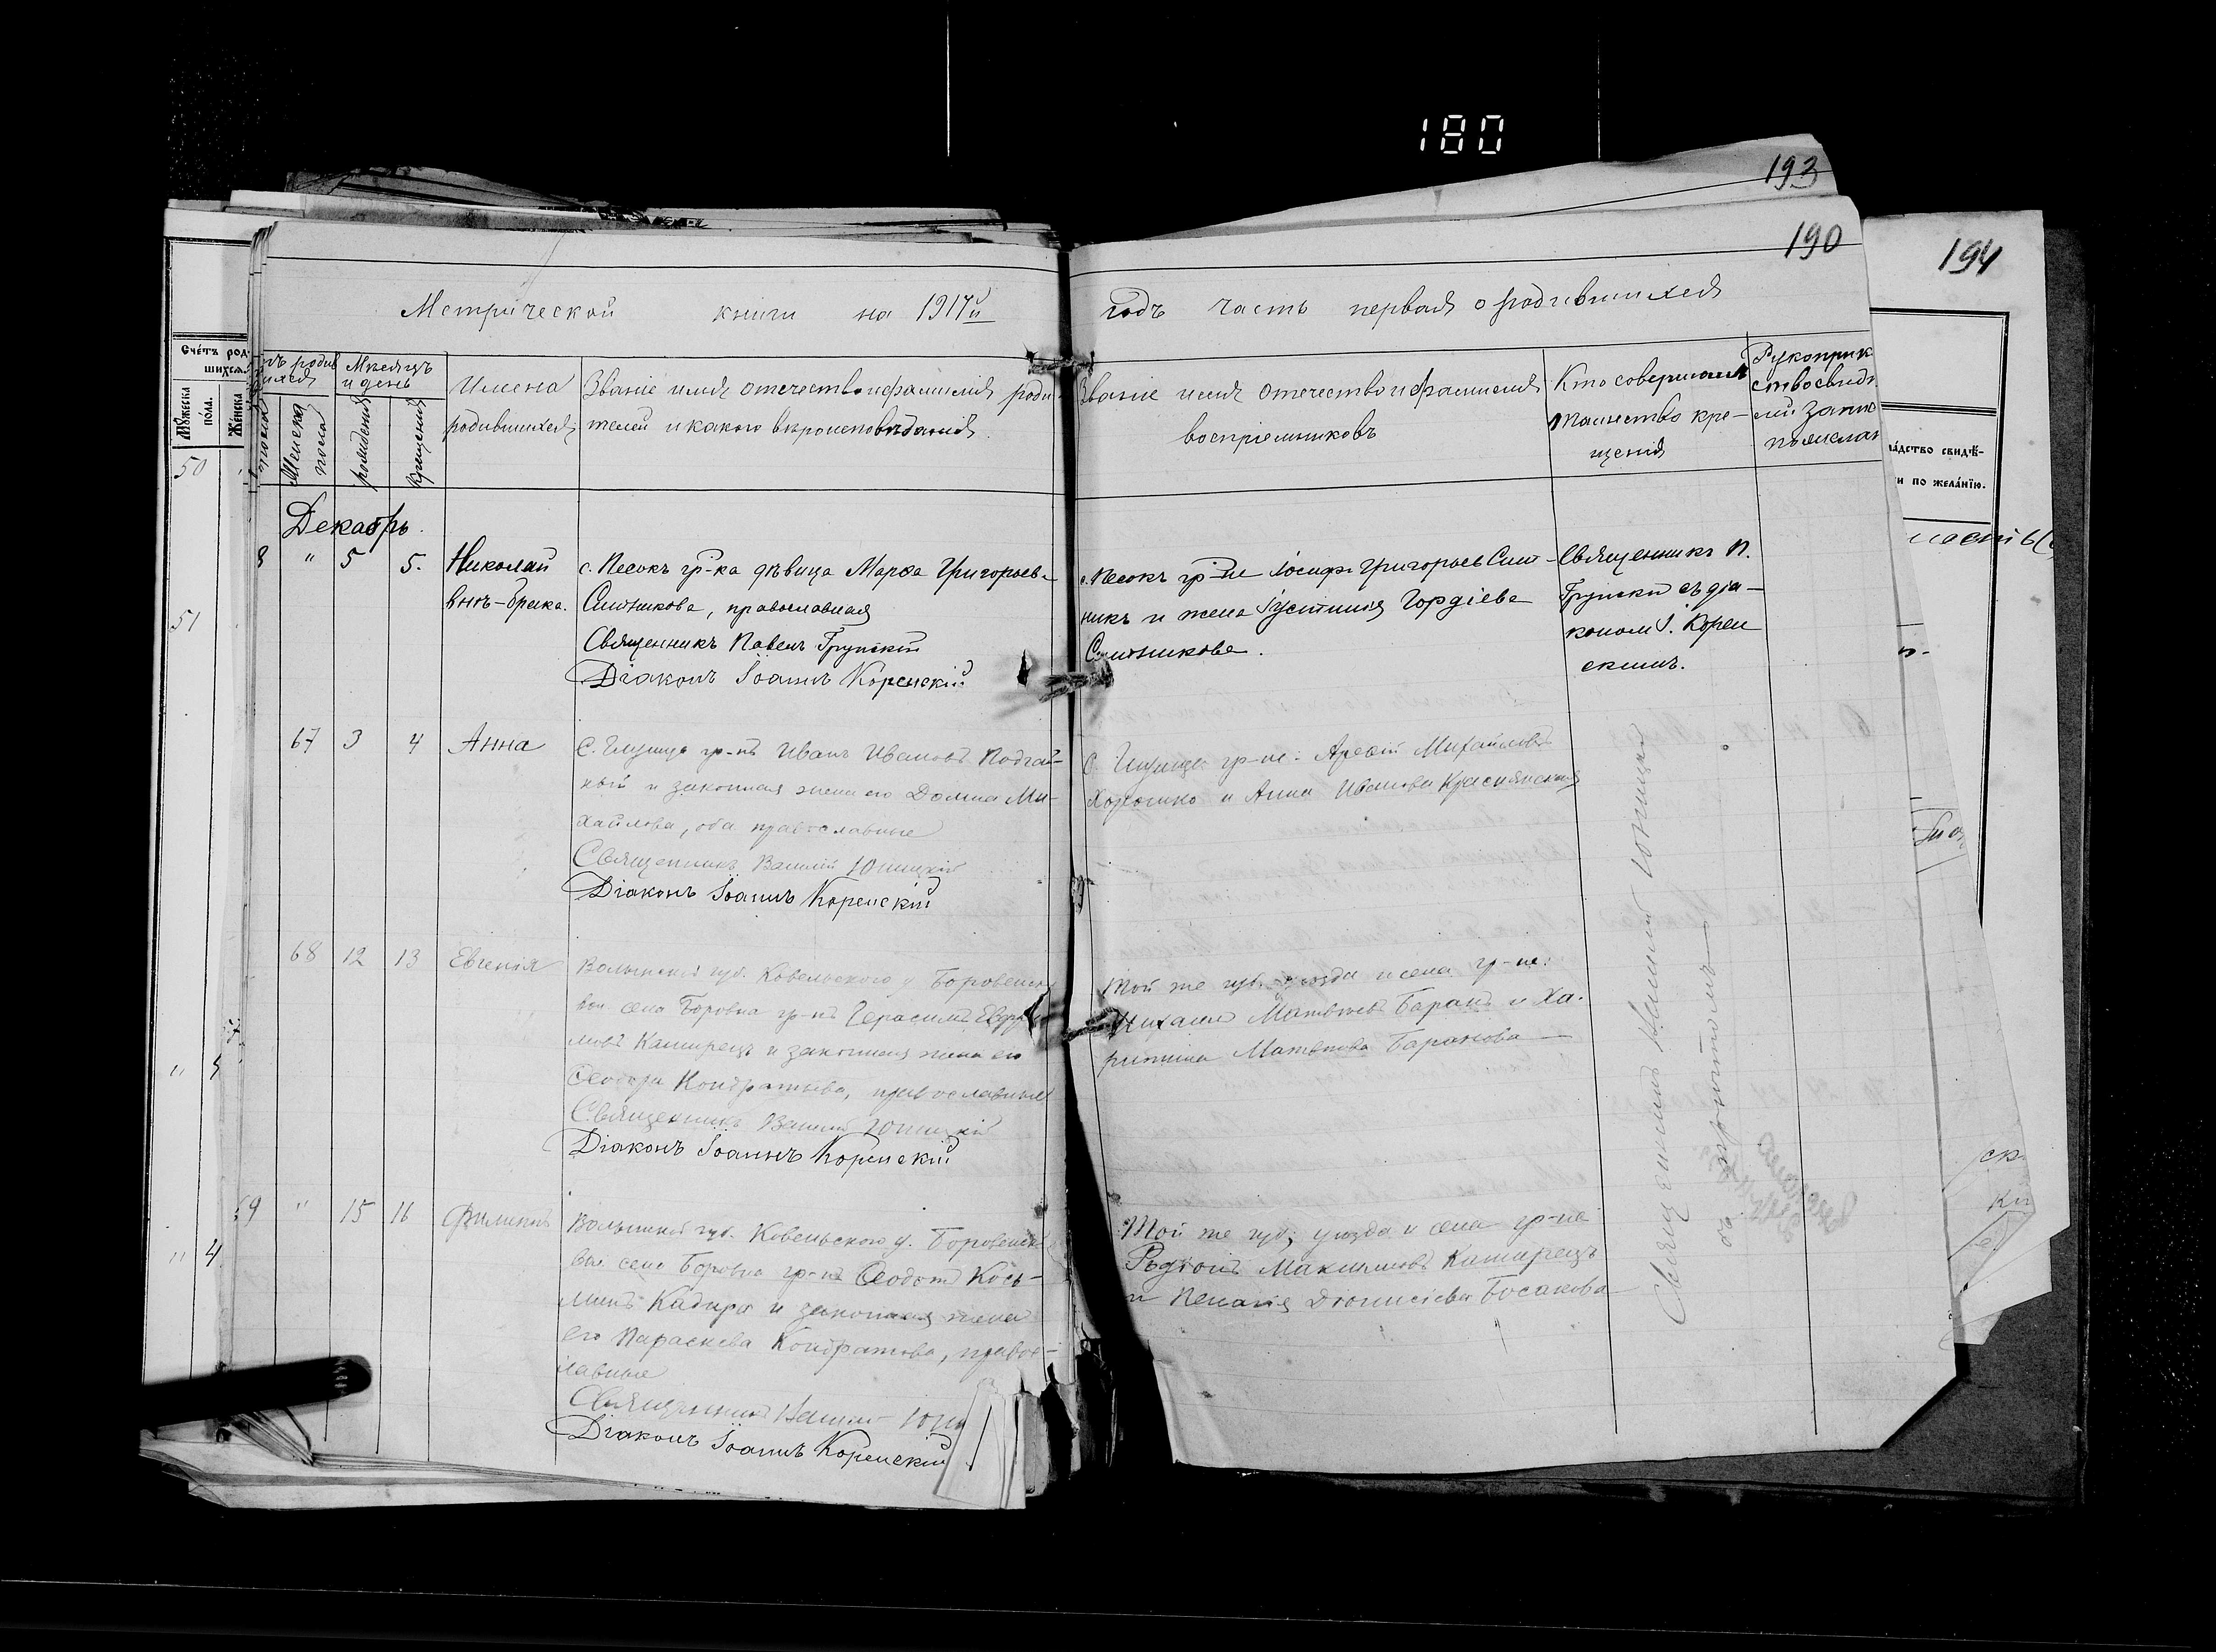 180
193
190
194
Метрической книги на 1917й годъ часть первая о родившихся
Счётъ род
шихся.
Мужеска
пола.
Женска
Мѣсяцъ
и день
Женска
пола
рожденія
крещенія
Имена
родившихся
Званіе имя отечество и фамилія роди-
телей и какого вѣроисповѣданія.
Званіе имя отечество и фамилія
воспріемниковъ
Кто совершилъ
таинство кре-
щенія
Рукоприк
ство свид
ли запи
по желан
ѧ́дство свидѣ-
и по жела́нїю.
50
51
Декабрь.
8 " 5 5. Николай
внѣ-брака.
с. Песокъ гр-ка дѣвица Марѳа Григорьева
Ситникова, православная
Священникъ Павелъ Грунскій
Діаконъ Іоаннъ Коренскій
с. Песокъ гр-не Іосифъ Григорьевъ Сит-
никъ и жена Іустинія Гордіева
Ситникова.
Священникъ П.
Грунскій съ діа-
кономъ І. Корен
скимъ.
67 3 4 Анна
гр-нъ Иванъ Ивановъ Подгай-
кій и законная жена его Домна Ми-
хайлова, оба православные
Священникъ Василій Юницкій
Діаконъ Іоаннъ Коренскій
гр-не: Арсеній Михайловъ
Хорошко и Анна Иванова
68 12 13 Евгенія
Волынской губ. Ковельскаго у. Боровенск
вол. села Боровна гр-нъ Герасимъ
мовъ Каширецъ и законная жена его
Ѳеодора Кондратьева, православные
Священникъ Василій Юницкій
Діаконъ Іоаннъ Коренскій
Той же губ. уѣзда и села гр-не:
Михаилъ Матвѣевъ Баранъ и Ха-
ритина Матвѣева Баранова
69 " 15 16 Филиппъ
Волынской губ. Ковельскаго у. Боровенск
вол. села Боровна гр-нъ Ѳеодотъ Кось-
минъ Кадыра и законная жена
его Параскева Кондратова, право-
славные
Священникъ Василій Юни
Діаконъ Іоаннъ Коренскій
Той же губ, уѣзда и села гр-не
Родіонъ Максимовъ Каширецъ
и Пелагія Діонисіева Босакова
Священникъ Василій Юницкій